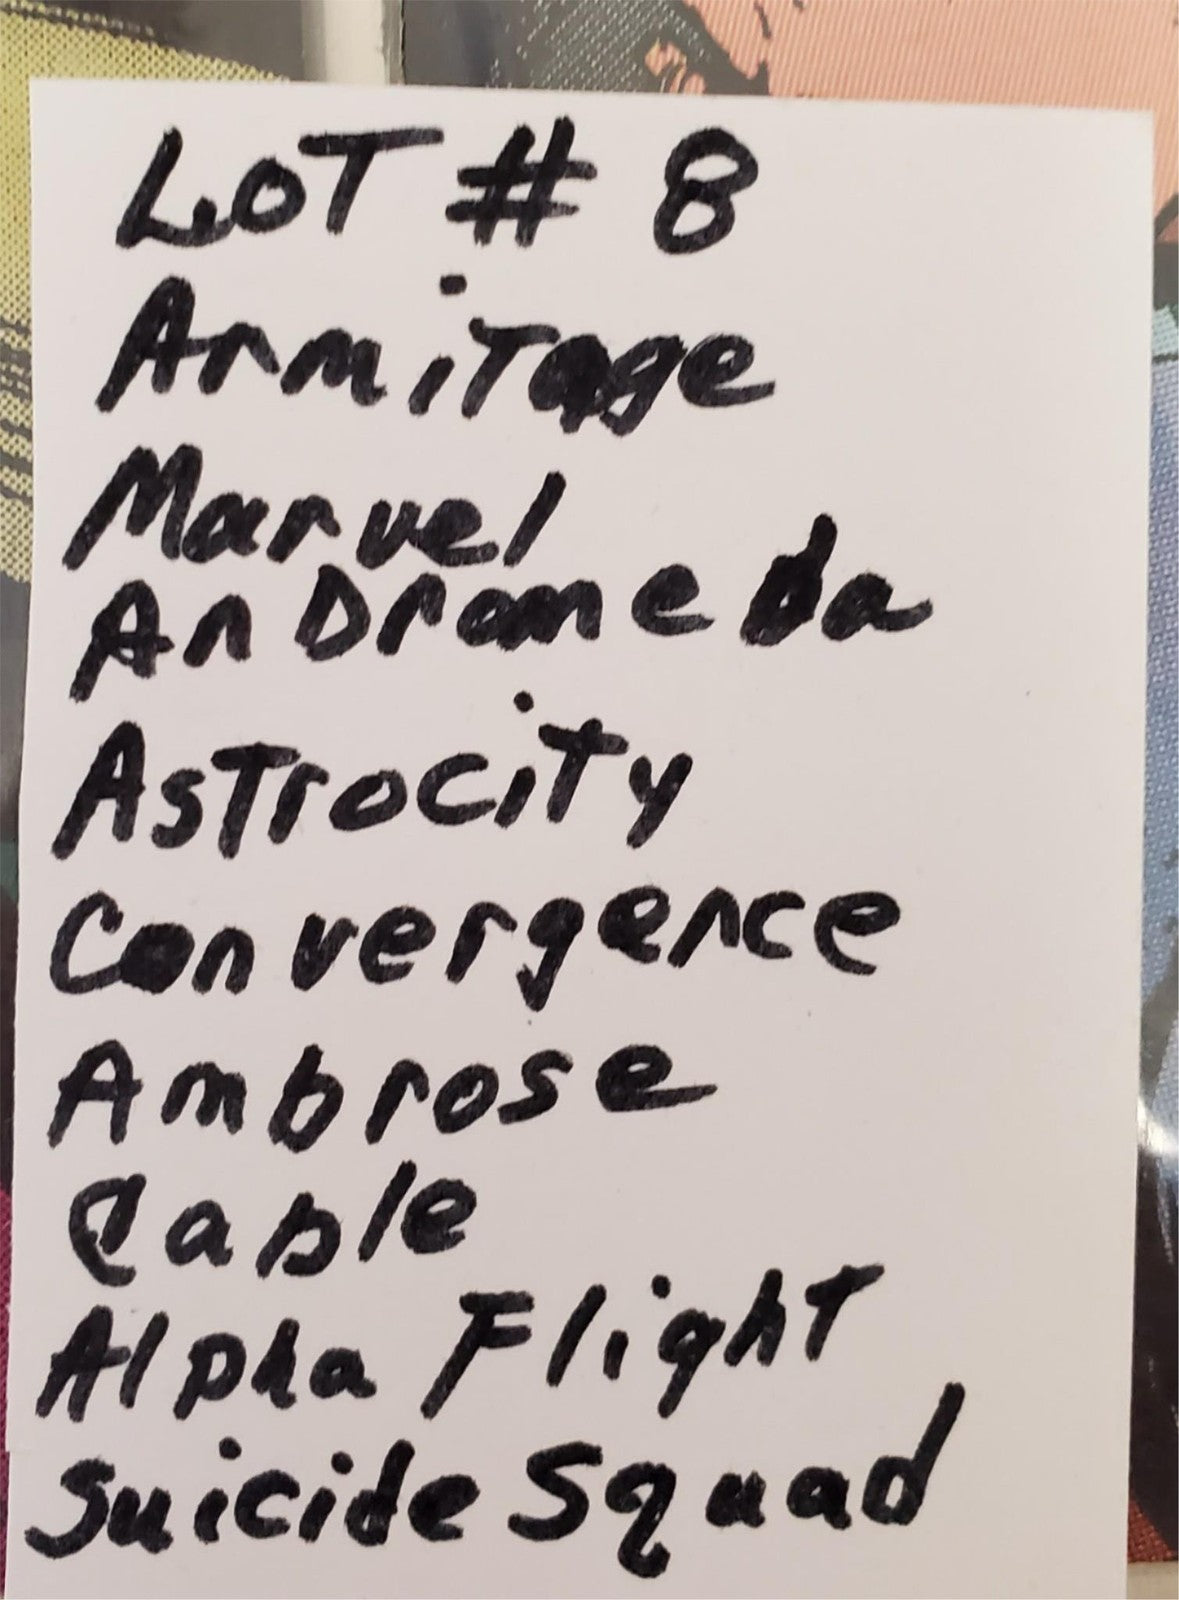 LOT # 8
Armitage
Marvel
AnDromeda
Astrocity
Convergence
Ambrose
Cable
Alpha Flight
Suicide Squad